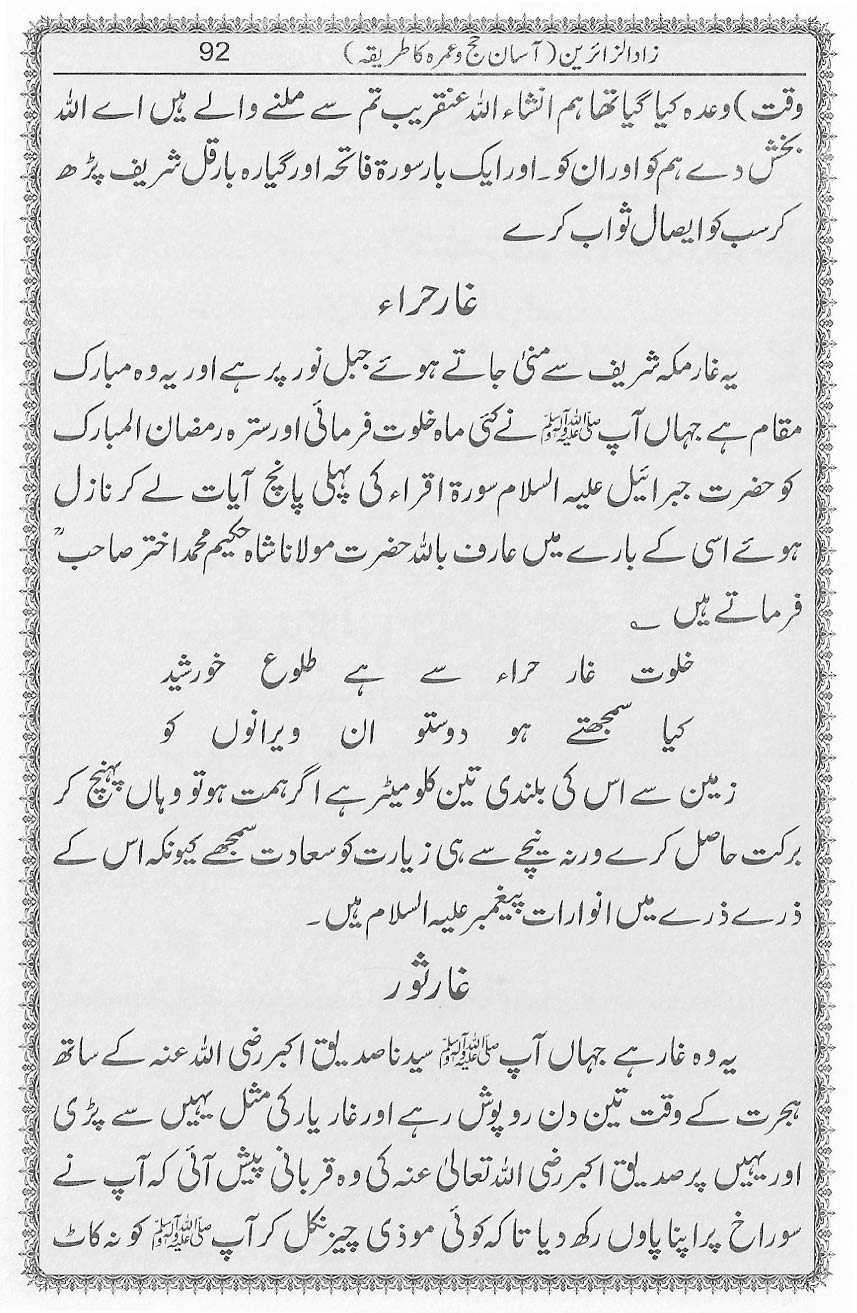 زاد الزائرین (آسان حج و عمرہ کا طریقہ) 92
وقت) وعدہ کیا گیا تھا ہم انشاء اللہ عنقریب تم سے ملنے والے ہیں اے اللہ
بخش دے ہم کو اور ان کو۔ اور ایک بار سورۃ فاتحہ اور گیارہ بار قل شریف پڑھ
کر سب کو ایصال ثواب کرے
غار حراء
یہ غار مکہ شریف سے منیٰ جاتے ہوئے جبل نور پر ہے اور یہ وہ مبارک
مقام ہے جہاں آپ ﷺ نے کئی ماہ خلوت فرمائی اور سترہ رمضان المبارک
کو حضرت جبرائیل علیہ السلام سورۃ اقراء کی پہلی پانچ آیات لے کر نازل
ہوئے اسی کے بارے میں عارف باللہ حضرت مولانا شاہ حکیم محمد اختر صاحبؒ
فرماتے ہیں ؎
خلوت غار حراء سے ہے طلوع خورشید
کیا سمجھتے ہو دوستو ان ویرانوں کو
زمین سے اس کی بلندی تین کلو میٹر ہے اگر ہمت ہو تو وہاں پہنچ کر
برکت حاصل کرے ورنہ نیچے سے ہی زیارت کو سعادت سمجھے کیونکہ اس کے
ذرے ذرے میں انوارات پیغمبر علیہ السلام ہیں۔
غار ثور
یہ وہ غار ہے جہاں آپ ﷺ سیدنا صدیق اکبر رضی اللہ عنہ کے ساتھ
ہجرت کے وقت تین دن روپوش رہے اور غار یار کی مثل یہیں سے پڑی
اور یہیں پر صدیق اکبر رضی اللہ تعالیٰ عنہ کی وہ قربانی پیش آئی کہ آپ نے
سوراخ پر اپنا پاوں رکھ دیا تا کہ کوئی موذی چیز نکل کر آپ ﷺ کو نہ کاٹ